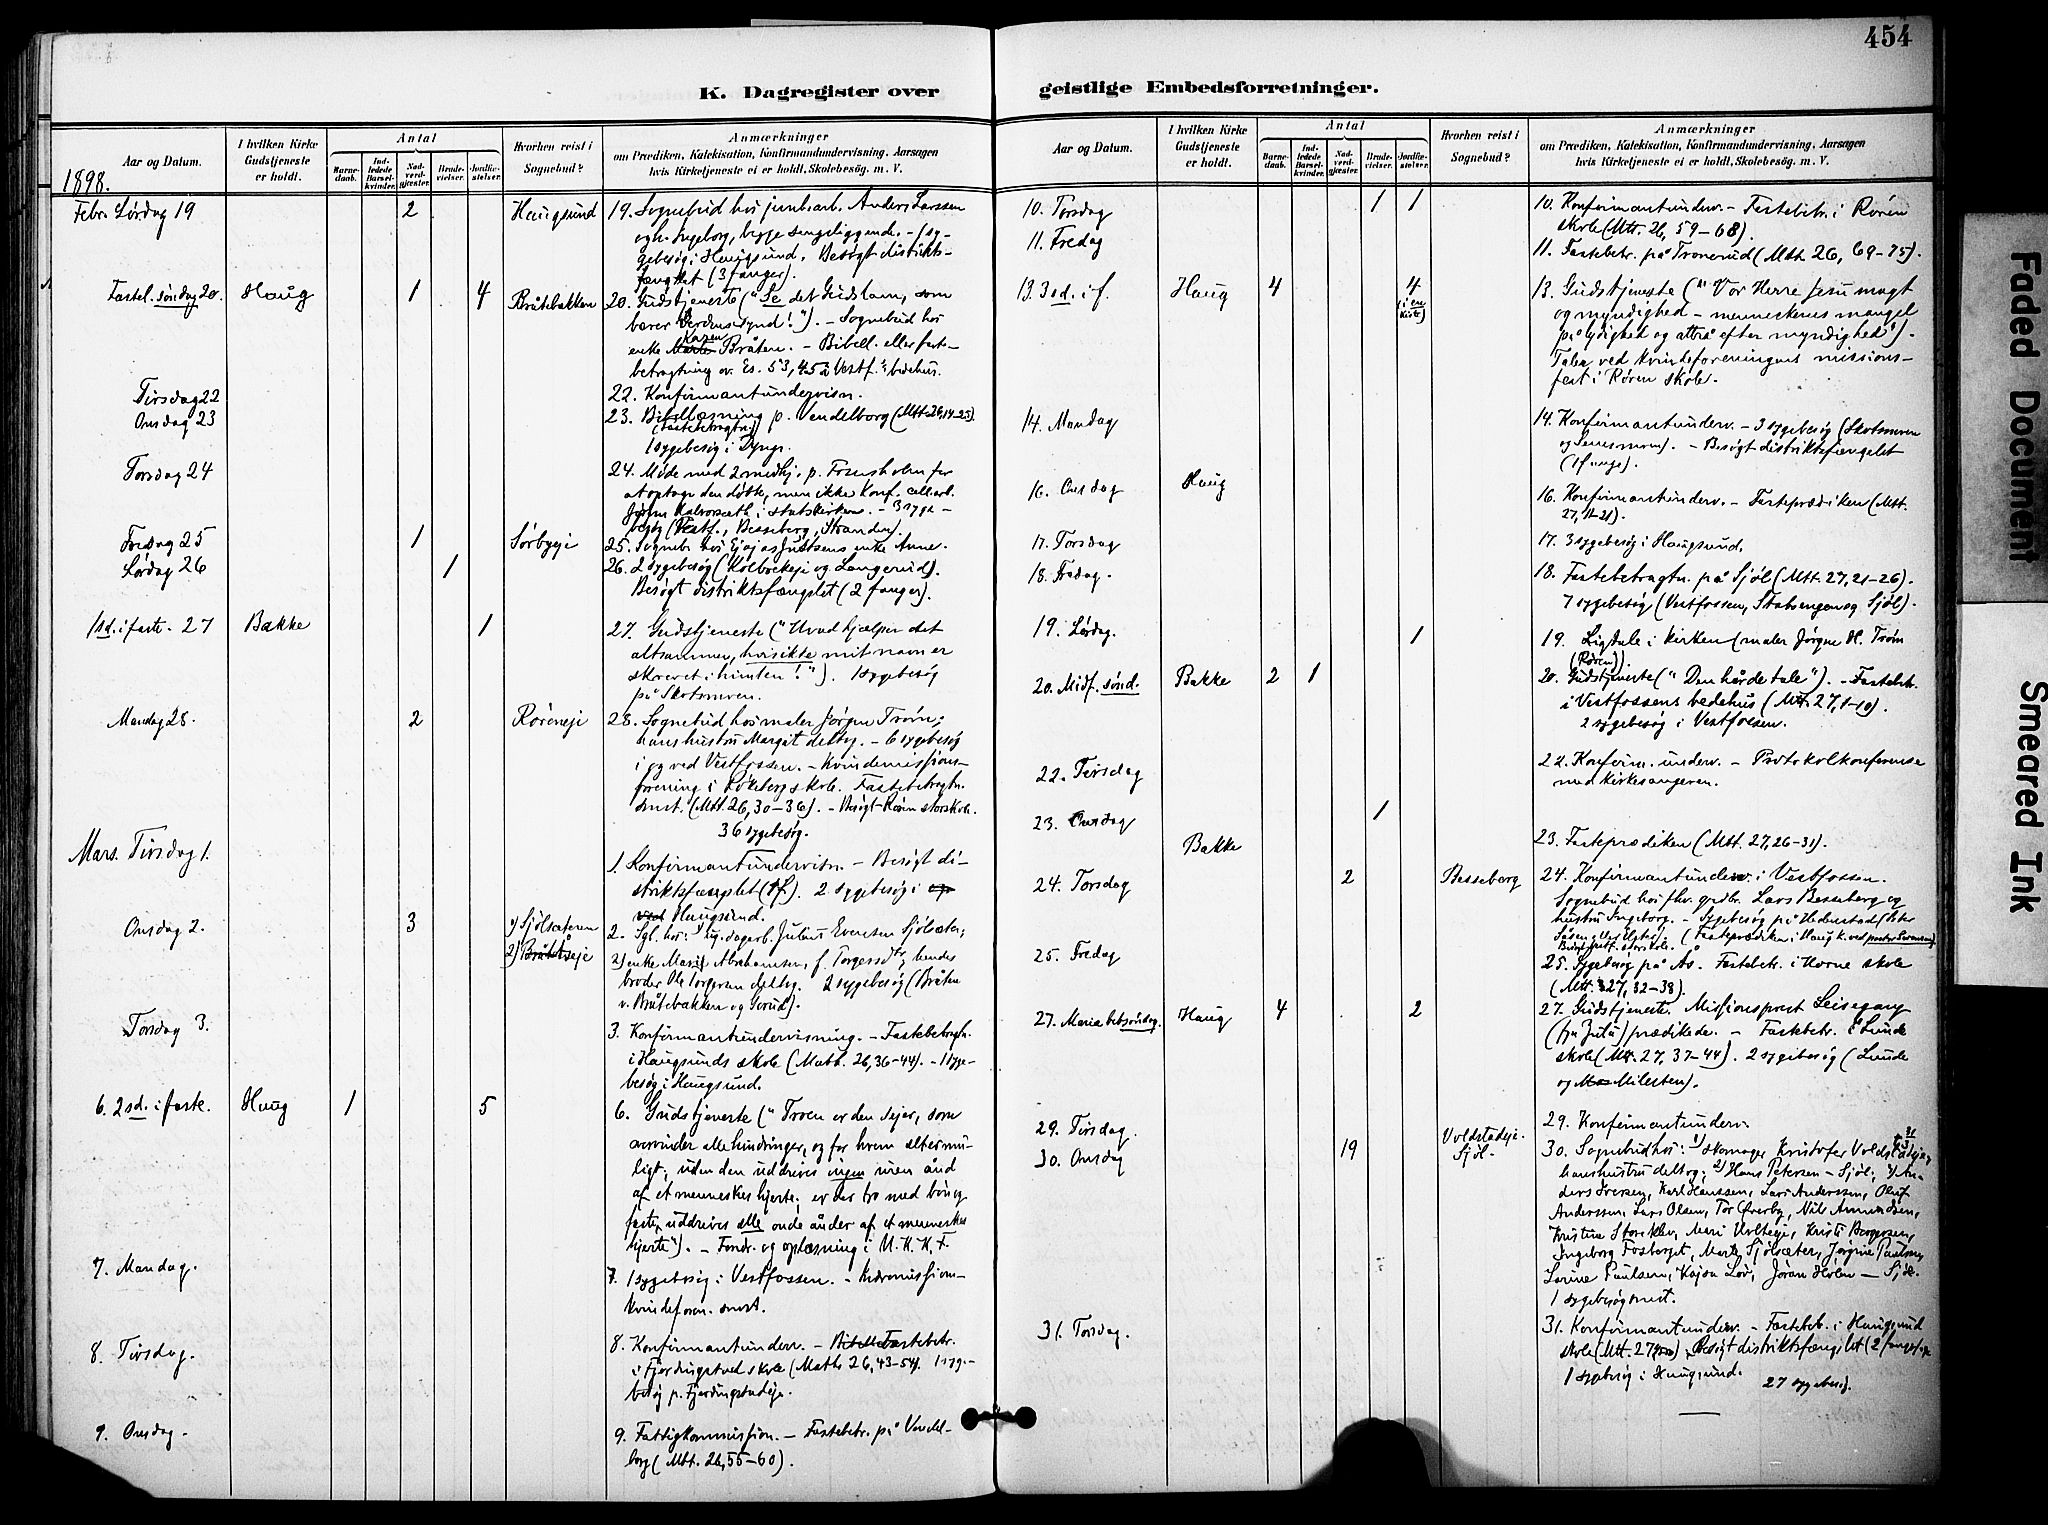 454
K. Dagregister over
geistlige Embedsforretninger.
Aar og Datum.
I hvilken Kirke Gudstjeneste er holdt.
Antal
Barnedaab.
Indledede Barselkvinder.
Nadverdgjester.
Brudevielser.
Jordfæstelser.
Hvorhen reist i Sognebud?
Anmærkninger
om Prædiken, Katekisation, Konfirmandundervisning, Aarsagen
hvis Kirketjeneste ei er holdt, Skolebesög. m. V.
1898.
Febr. Lørdag 19 2 Haugsund 19. Sognebud hos jernb.arb. Anders Larssen
og h. Ingeborg, begge sengeliggende. – 1 sy-
gebesøg i Haugsund. Besøgt distrikts-
fængslet (3 fanger).
Fastel. søndag 20. Haug 1 4 Bråtebakken 20. Gudstjeneste ("Se det Guds lam, som
bærer Verdens synd!"). – Sognebud hos
enke Karen Bråten. – Bibell. eller faste-
betragtning ov. Es. 53, 4-5 i Vestf.s bedehus.
Tirsdag 22 22. Konfirmantundervisn.
Onsdag 23 23. Bibellæsning p. Vendelborg (Mtt. 26, 14-25).
(fastebetragtn.)
1 sygebesøg i
Torsdag 24 24. Møde med 2 medhj. p. for
at optage den døbte, men ikke konf.
i statskirken. – 3 syge-
besøg (Vestf., Besseberg, Stranden).
Fredag 25 1 Sørbyeje 25. Sogneb. hos enke Anne.
Lørdag 26 1 26. 2 sygebesøg (Kolbrekeje og Langerud).
Besøgt distriktsfængslet (2 fanger).
1 sd. i faste. 27 Bakke 1 27. Gudstjeneste ("Hvad hjælper det
altsammen, hvis ikke mit navn er
skrevet i himlen!"). 1 sygebesøg
på Skotsmoen.
Mandag 28. 2 Røreneje 28. Sognebud hos maler Jørgen Trøm;
hans hustru Margit deltog. – 6 sygebesøg
i og ved Vestfossen. – Kvindemissions-
forening i Løkeberg skole. Fastebetragtn.
smst. (Mtt. 26, 30-36). – Besøgt Røren storskole.
36 sygebesøg.
Mars. Tirsdag 1. 1. Konfirmantundervisn. – Besøgt di-
striktsfængslet (1 f.). 2 sygebesøg i
Haugsund.
Onsdag 2. 3 1) Sjölsæteren 2. Sgb. hos: 1) ug. dagarb. Julius Evensen Sjölsæter;
2) Bråtåseje 2) enke Abrahamsen, f. Torgersdtr, hendes
broder Ole Torgersen deltog. 2 sygebesøg (Bråten
v. Bråtebakken og Gorud).
Torsdag 3. 3. Konfirmantundervisning. – Fastebetragtn.
i Haugsunds skole (Matth. 26, 36-44). – 1 syge-
besøg i Haugsund.
6. 2 sd. i faste. Haug 1 5 6. Gudstjeneste ("Troen er den sejer, som
overvinder alle hindringer, og for hvem alt er mu-
ligt; uden den uddrives ingen uren ånd
af et menneskes hjerte; er der tro med bön og
faste, uddrives alle onde ånder af et menneskes
hjerte"). – Foredr. og oplæsning i U. K. K. F.
7. Mandag. 7. 1 sygebesøg i Vestfossen. – Indremissions-
kvindeforen. smst.
8. Tirsdag. 8. Konfirmantunderv. – Fastebetr.
i Fjerdingstad skole (Matth 26, 43-54). 1 syge-
besøg p. Fjerdingstadeje.
9. Onsdag. 9. Fattigkommission. – Fastebetr. på Vendel-
borg (Mtt. 26, 55-60).
Aar og Datum.
I hvilken Kirke Gudstjeneste er holdt.
Antal
Barnedaab.
Indledede Barselkvinder.
Nadverdgjester.
Brudevielser.
Jordfæstelser.
Hvorhen reist i Sognebud?
Anmærkninger
om Prædiken, Katekisation, Konfirmandundervisning, Aarsagen
hvis Kirketjeneste ei er holdt, Skolebesög. m. V.
10. Torsdag 1 1 10. Konfirmantunderv. – Fastebetr. i Røren
skole (Mtt. 26, 59-68).
11. Fredag 11. Fastebetr. på Tronerud (Mtt. 26, 69-75).
13. 3 sd. i f. Haug 4 4 (i en kiste) 13. Gudstjeneste ("Vor Herre Jesu magt
og myndighed – menneskenes mangel
på lydighed og attrå efter myndighed").
Tale ved kvindeforeningens missions-
fest i Røren skole.
14. Mandag 14. Konfirmantunderv. – 3 sygebesøg (Skotsmoen
og ). – Besøgt distriktsfængslet
(1 fange).
16. Onsdag Haug 16. Konfirmantunderv. – Fasteprædiken (Mtt.
27, 11-21).
17. Torsdag 17. 3 sygebesøg i Haugsund.
18. Fredag. 18. Fastebetragtn. på Sjöl (Mtt. 27, 21-26).
7 sygebesøg (Vestfossen, Stabsengen og Sjöl).
19. Lørdag. 1 19. Ligtale i kirken (maler Jörgen H. Tröm
(Rören)).
20. Midf. sønd. Bakke 2 1 20. Gudstjeneste ("Den hårde tale"). – Fastebetr.
i Vestfossens bedehus (Mtt. 27, 1-10).
2 sygebesøg i Vestfossen.
22. Tirsdag 22. Konfirm. underv. – Protokolkonferense
med kirkesangeren.
23. Onsdag Bakke 1 23. Fasteprædiken (Mtt. 27, 26-31).
24. Torsdag 2 Besseberg 24. Konfirmantunderv. i Vestfossen.
Sognebud hos fhv. grdbr. Lars Besseberg og
hustru Ingeborg. – Sygebesøg på Hedenstad
(Fasteprædiken i Haug k. ved pastor Svensen).
Besøgt Vestf. storskole.
25. Fredag 25. Sygebesøg på Ås. Fastebetr. i Horne skole
(Mtt. 27, 32-38).
27. Mariæ bebs. søndag. Haug 4 2 27. Gudstjeneste. Missionsprest Leisegang
(fra Zulu) prædikede. – Fastebetr. i Lunde
skole (Mtt. 27, 37-44). 2 sygebesøg (Lunde
og Milesten).
29. Tirsdag. 29. Konfirmantunderv.
30. Onsdag 19 Voldstadeje. Sjöl. 30. Sognebud hos: 1) skomager Kristofer Voldstadeje,
hans hustru deltog; 2) Hans Petersen – Sjöl; 3) An-
ders Iversen, Karl Hanssen, Lars Anderssen, Oluf
Anderssen, Lars Olsen, Tor Överby, Nils Amundsen,
Kristine Storeklev, Mari Kristi
Ingeborg Fosberget, Marte Sjölsæter, Jörgine Paulsen,
Lorine Paulsen, Kajsa Lov, Jöran Holm – Sjöl.
1 sygebesøg smst.
31. Torsdag. 31. Konfirmantunderv. – Fastebetr. i Haugsund
skole (Mtt. 27, ). Besøgt distriktsfængslet (2 fanger).
1 sygebesøg i Haugsund.
27 sygebesøg.
Faded Document
Smeared Ink